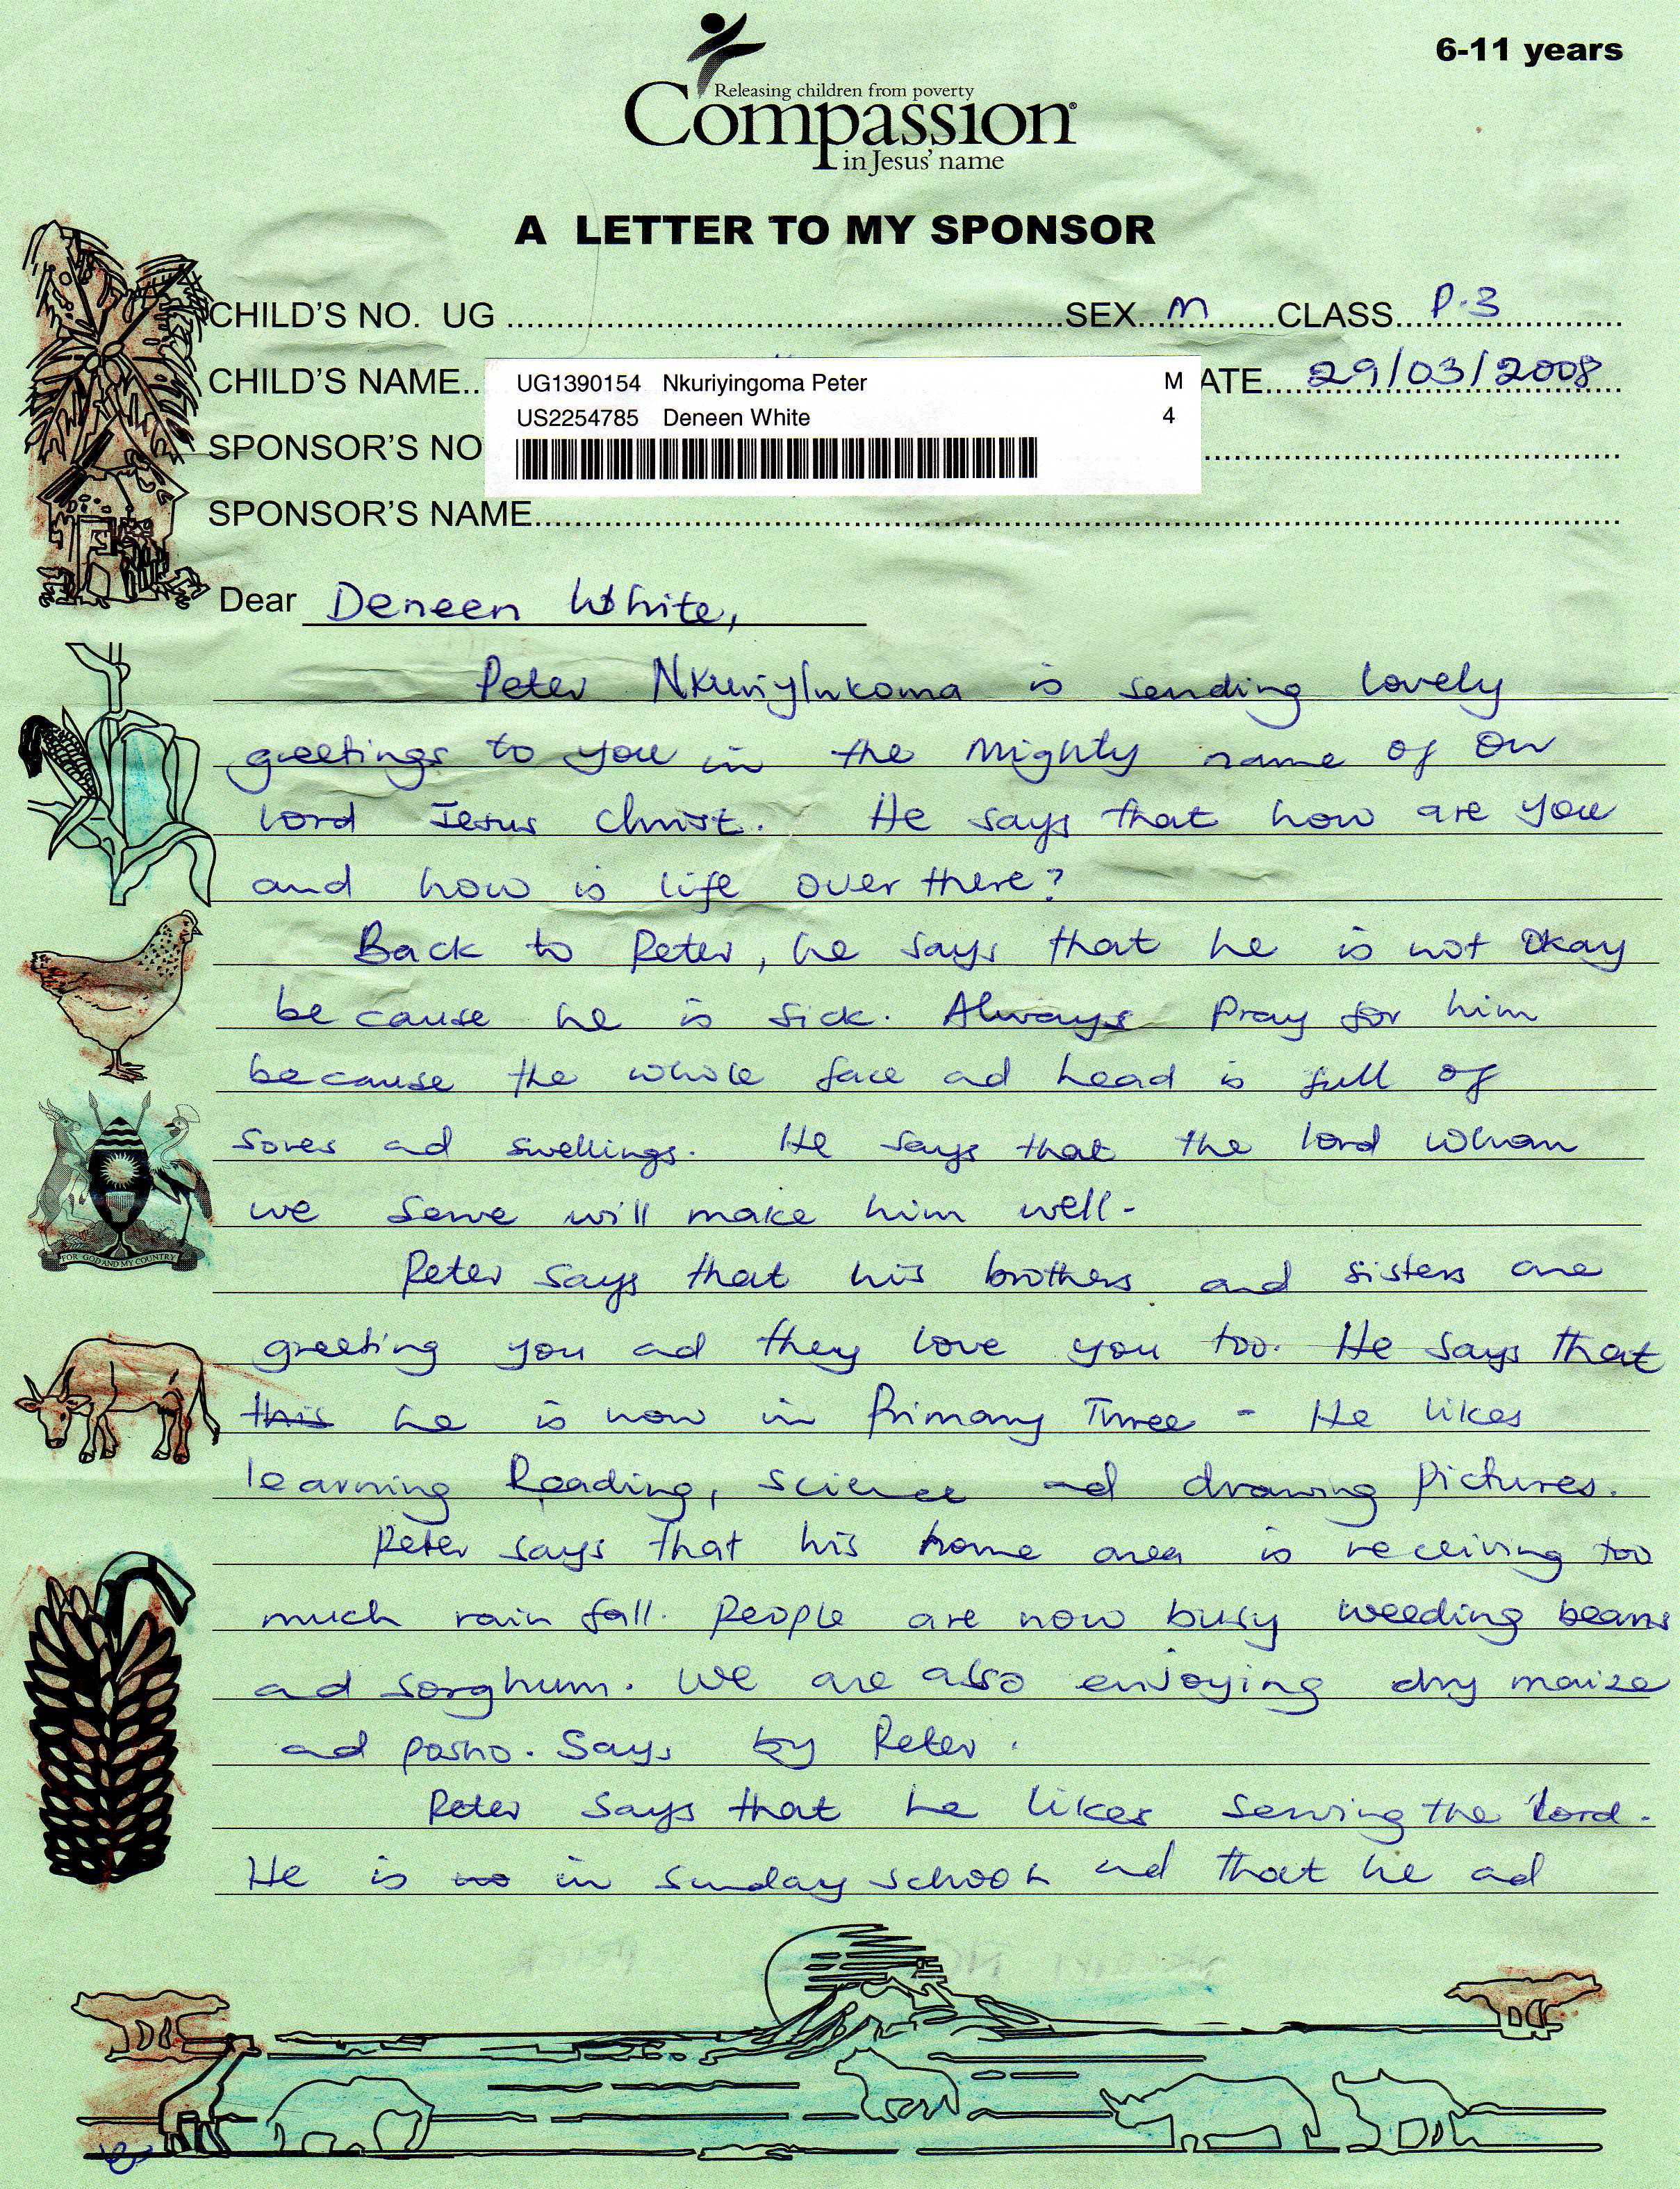 6-11 years
Releasing children from poverty
Compassion®
in Jesus' name
A LETTER TO MY SPONSOR
CHILD'S NO. UG ........ SEX... M ........CLASS... P.3 ........
CHILD'S NAME.. ATE.... 29/03/2008
UG1390154 Nkuriyingoma Peter M
US2254785 Deneen White 4
SPONSOR'S NO ........
SPONSOR'S NAME........
Dear Deneen White,
Peter NkuriyInkoma is sending lovely
greetings to you in the Mighty name of Our
lord Jesus christ. He says that how are you
and how is life over there?
Back to Peter, he says that he is not Okay
be cause he is sick. Always Pray for him
because the whole face ad head is full of
sores ad swellings. He says that the lord whom
we serve will make him well-
Peter says that his brothers and sisters are
greeting you ad they love you too. He says that
this he is now in Primary Three - He likes
learning Reading, science ad drawing Pictures.
Peter says that his home area is receiving too
much rain fall. People are now busy weeding beans
ad sorghum. We are also enjoying dry maize
ad posho. Says by Peter.
Peter says that he likes serving the lord.
He is no in sunday school ad that he ad
FOR GOD AND MY COUNTRY